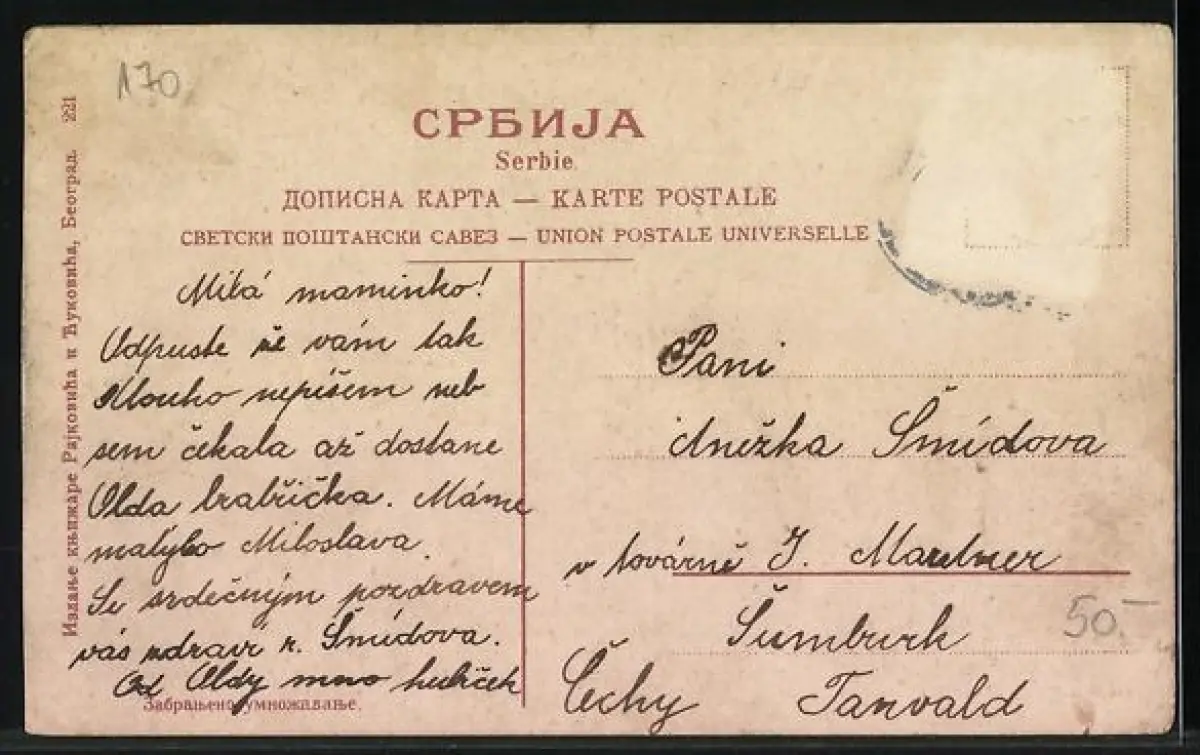 170
СРБИЈА
Serbie.
ДОПИСНА КАРТА — KARTE POSTALE
СВЕТСКИ ПОШТАНСКИ САВЕЗ — UNION POSTALE UNIVERSELLE
Издање књижаре Рајковића и Ћуковића, Београд. 221
Milá maminko!
Odpuste že vám tak
dlouho nepišem neb
sem čekala až dostane
Olda bratřička. Máme
malyho Miloslava.
Se srdečným pozdravem
vás zdraví r. Šmídova.
Od Oldy mno hubiček
Забрањено умножавање.
Pani
Anežka Šmídova
v továrně J. Mautner
Šumburk
Čechy Tanvald
50.—